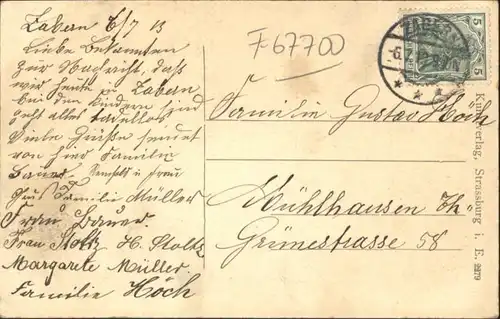 Zabern 6/7 13
Liebe Bekannten
Zur Nachricht, daß
wir heute in Zabern
bei den Kindern sind
geht alles tadellos
Viele Grüße sendet
von hier Familie
Sauer. u Frau
Familie Müller
Frau Sauer.
Frau Stoltz H. Stoltz
Margarete Müller.
Familie Höch
F67700
ZABERN
5
5
Familie Gustav Höch
Mühlhausen Th
Grünestrasse 58
Kunstverlag, Strassburg i. E. 2279